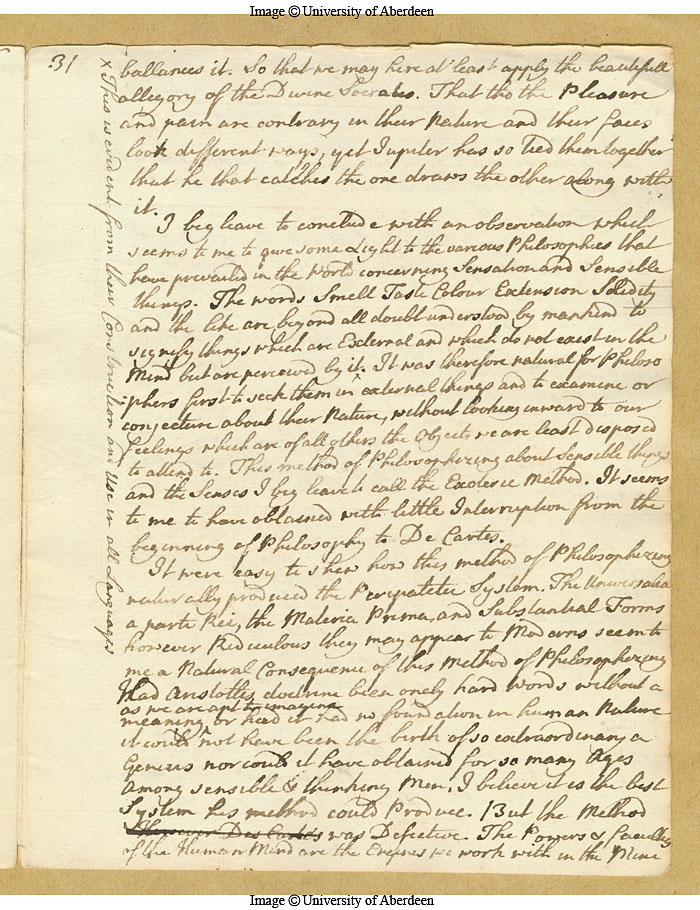 Image © University of Aberdeen
31
ballances it. So that we may here at least apply the beautifull
allegory of the Divine Socrates. That tho the Pleasure
and pain are contrary in their Nature and their faces
look different ways, yet Jupiter has so tied them together
that he that catches the one draws the other along with
it.
I beg leave to conclude with an observation which
seems to me to give some Light to the various Philosophies that
have prevailed in the World concerning Sensation and Sensible
things. The words Smell Taste Colour Extension Solidity
and the like are beyond all doubt understood by mankind to
signify things which are External and which do not exist in the
Mind but are perceived by it. It was therefore natural for Philoso
phers first to seek them in external things and to examine or
conjecture about their Nature, without looking inward to our
feelings which are of all others the Objects we are least disposed
to attend to. This method of Philosophizing about Sensible things
and the Senses I beg leave to call the Exoteric Method. It seems
to me to have obtained with little Interruption from the
beginning of Philosophy to De Cartes.
It were easy to shew how this method of Philosophizing
naturally produced the Peripatetic System. The Universalia
a parte Rei, the Materia Prima, and Substantial Forms
however Ridiculous they may appear to Moderns seem to
me a Natural Consequence of this Method of Philosophizing
Had Aristotles doctrine been onely hard words without a
as we are apt to imagine
meaning, or had it had no foundation in human Nature
it could not have been the birth of so extraordinary a
Genius nor could it have obtained for so many Ages
among sensible & thinking Men. I believe it is the best
System his method could Produce. But the Method
Des Cartes was Defective. The Powers & faculties
of the Human Mind are the Engines we work with in the Mine
x This is evident from their Construction and Use in all Languages
Image © University of Aberdeen